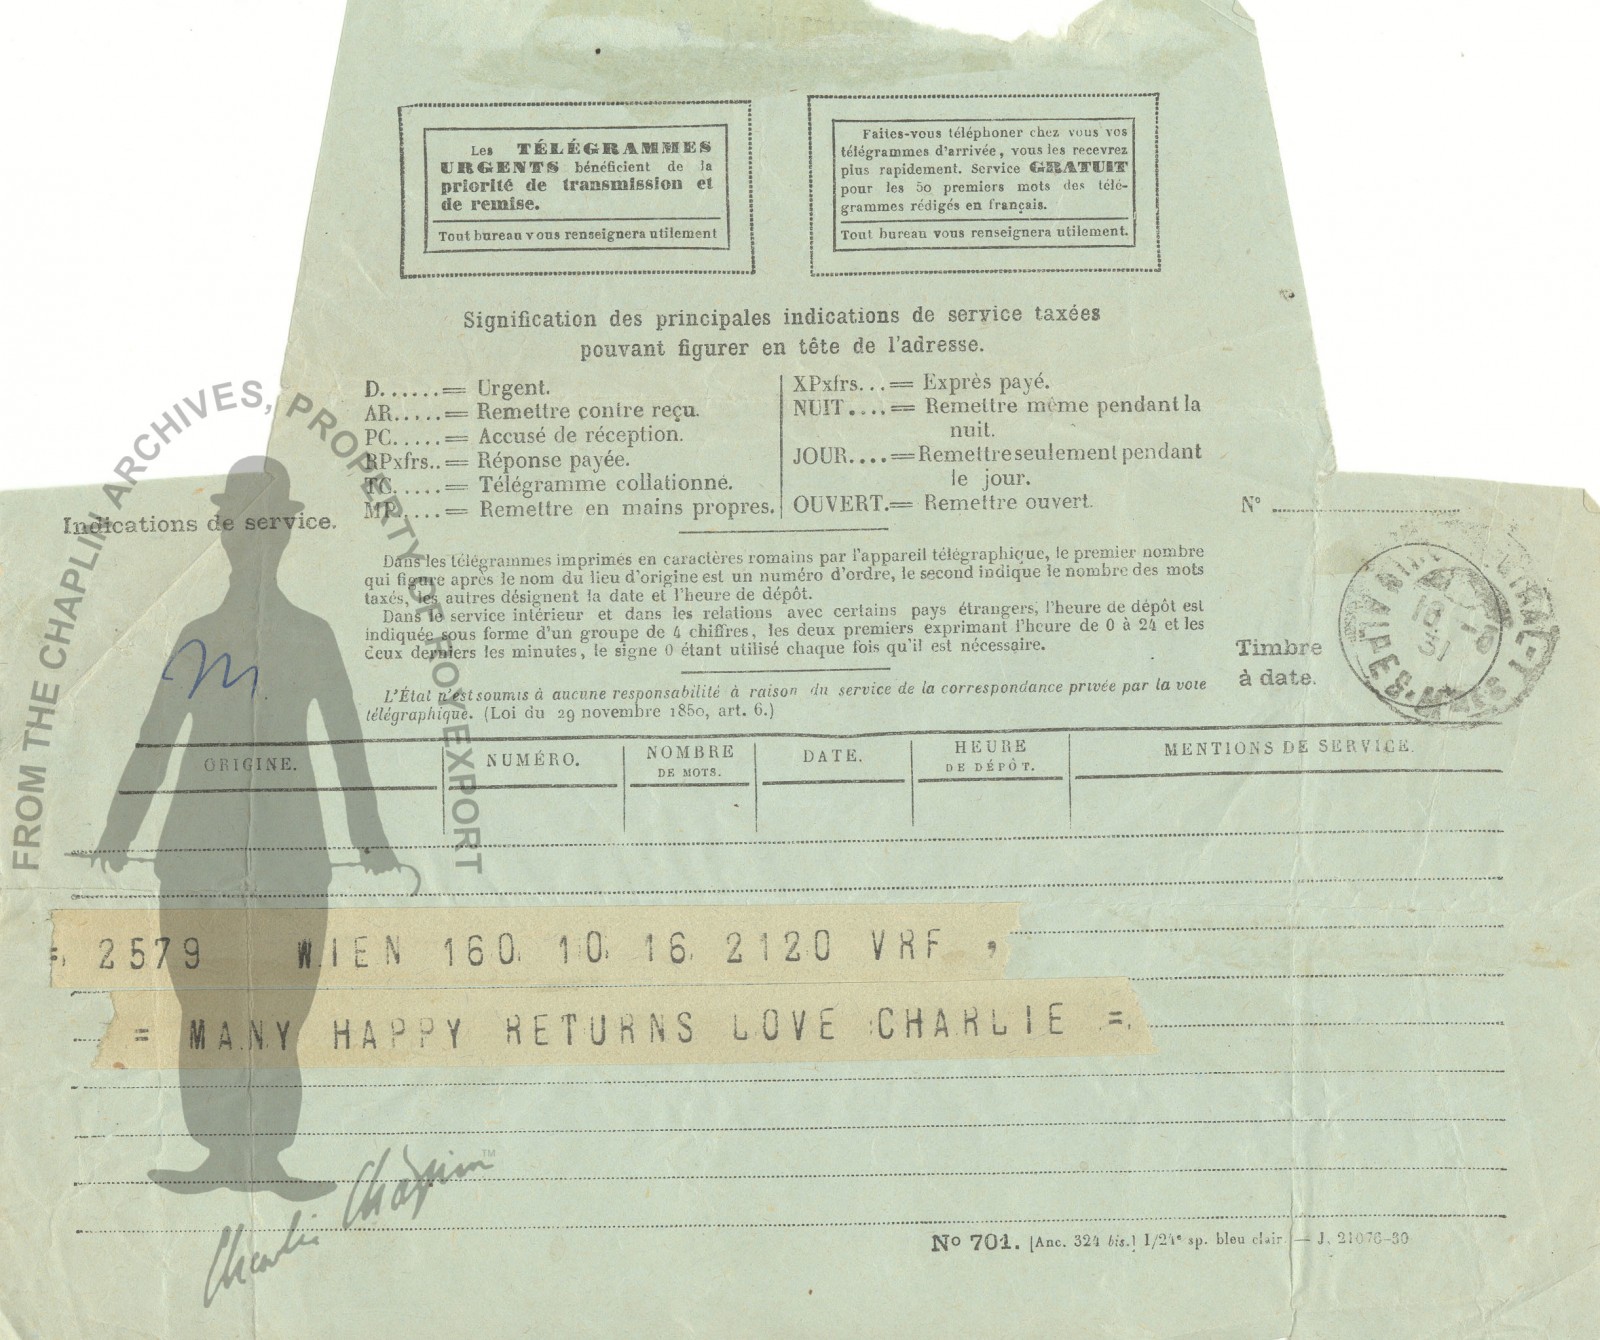 Les TÉLÉGRAMMES
URGENTS bénéficient de la
priorité de transmission et
de remise.
Tout bureau vous renseignera utilement
Faites-vous téléphoner chez vous vos
télégrammes d'arrivée, vous les recevrez
plus rapidement. Service GRATUIT
pour les 50 premiers mots des télé-
grammes rédigés en français.
Tout bureau vous renseignera utilement.
Signification des principales indications de service taxées
pouvant figurer en tête de l'adresse.
D......= Urgent.
AR.....= Remettre contre reçu.
PC.....= Accusé de réception.
RPxfrs..= Réponse payée.
TC.....= Télégramme collationné.
MP.....= Remettre en mains propres.
XPxfrs...= Exprès payé.
NUIT....= Remettre même pendant la
nuit.
JOUR....= Remettre seulement pendant
le jour.
OUVERT.= Remettre ouvert.
Indications de service.
N°
Dans les télégrammes imprimés en caractères romains par l'appareil télégraphique, le premier nombre
qui figure après le nom du lieu d'origine est un numéro d'ordre, le second indique le nombre des mots
taxés, les autres désignent la date et l'heure de dépôt.
Dans le service intérieur et dans les relations avec certains pays étrangers, l'heure de dépôt est
indiquée sous forme d'un groupe de 4 chiffres, les deux premiers exprimant l'heure de 0 à 24 et les
deux derniers les minutes, le signe 0 étant utilisé chaque fois qu'il est nécessaire.
L'État n'est soumis à aucune responsabilité à raison du service de la correspondance privée par la voie
télégraphique. (Loi du 29 novembre 1850, art. 6.)
Timbre
à date.
16
31
ORIGINE.
NUMÉRO.
NOMBRE
DE MOTS.
DATE.
HEURE
DE DÉPÔT.
MENTIONS DE SERVICE.
= 2579 WIEN 160 10 16 2120 VRF ,
= MANY HAPPY RETURNS LOVE CHARLIE =
N° 701. [Anc. 324 bis.] 1/24e sp. bleu clair. — J. 21076-30
FROM THE CHAPLIN ARCHIVES, PROPERTY OF ROY EXPORT
Charlie Chaplin™